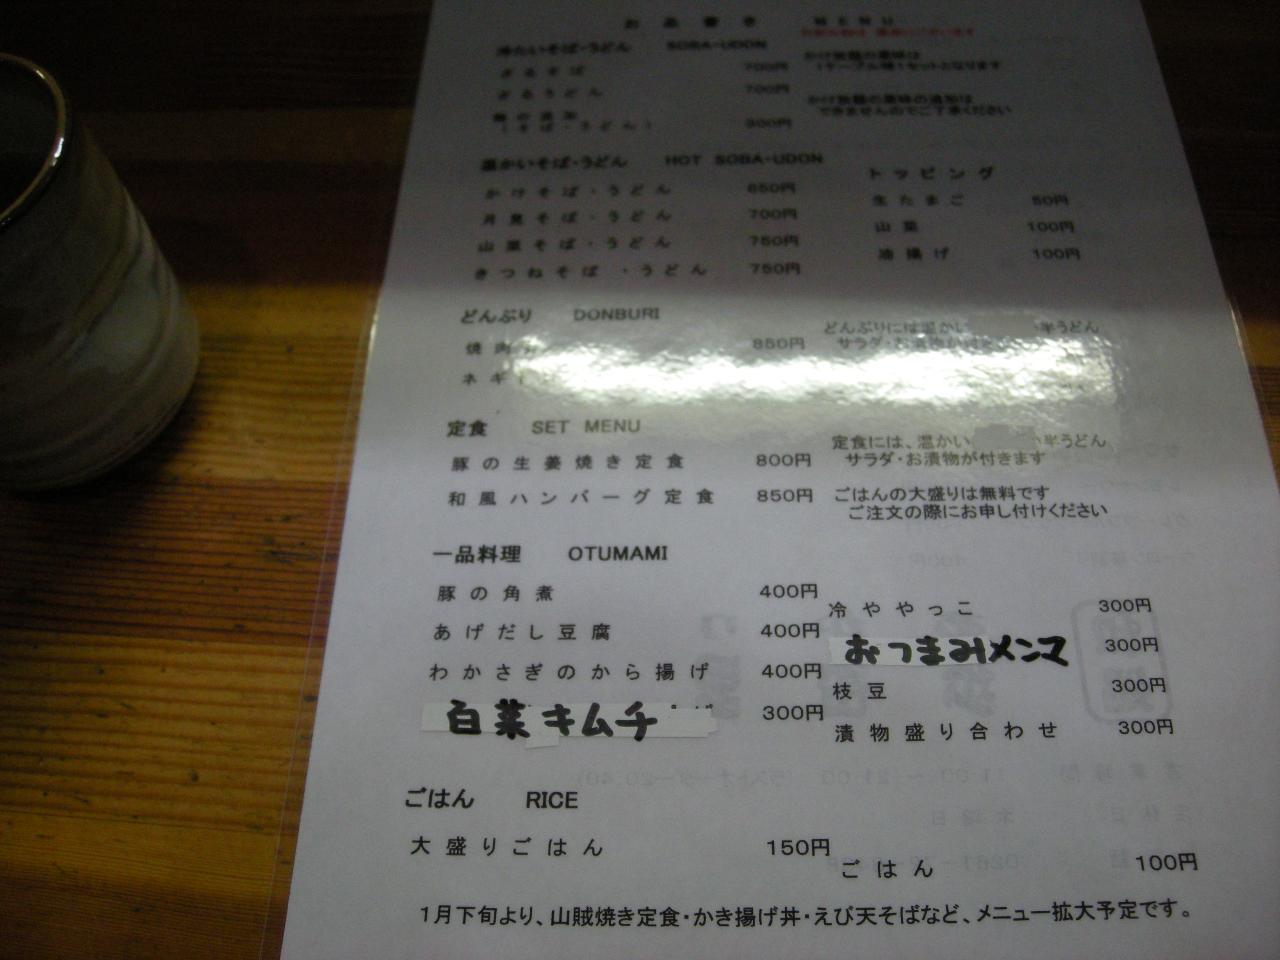 お品書き MENU
冷たいそば・うどん SOBA・UDON
ざるそば 700円
ざるうどん 700円
麺の追加
(そば・うどん) 300円
かけ放題の薬味は
1テーブル様1セットとなります
かけ放題の薬味の追加は
できませんのでご了承ください
温かいそば・うどん HOT SOBA・UDON
かけそば・うどん 650円
月見そば・うどん 700円
山菜そば・うどん 750円
きつねそば・うどん 750円
トッピング
生たまご 50円
山菜 100円
油揚げ 100円
どんぶり DONBURI
焼肉 850円
ネギ
どんぶりには温かい 半うどん
サラダ・お漬物が付き
定食 SET MENU
豚の生姜焼き定食 800円
和風ハンバーグ定食 850円
定食には、温かい 半うどん
サラダ・お漬物が付きます
ごはんの大盛りは無料です
ご注文の際にお申し付けください
一品料理 OTUMAMI
豚の角煮 400円
あげだし豆腐 400円
わかさぎのから揚げ 400円
白菜キムチ 300円
冷ややっこ 300円
おつまみメンマ 300円
枝豆 300円
漬物盛り合わせ 300円
ごはん RICE
大盛りごはん 150円
ごはん 100円
1月下旬より、山賊焼き定食・かき揚げ丼・えび天そばなど、メニュー拡大予定です。